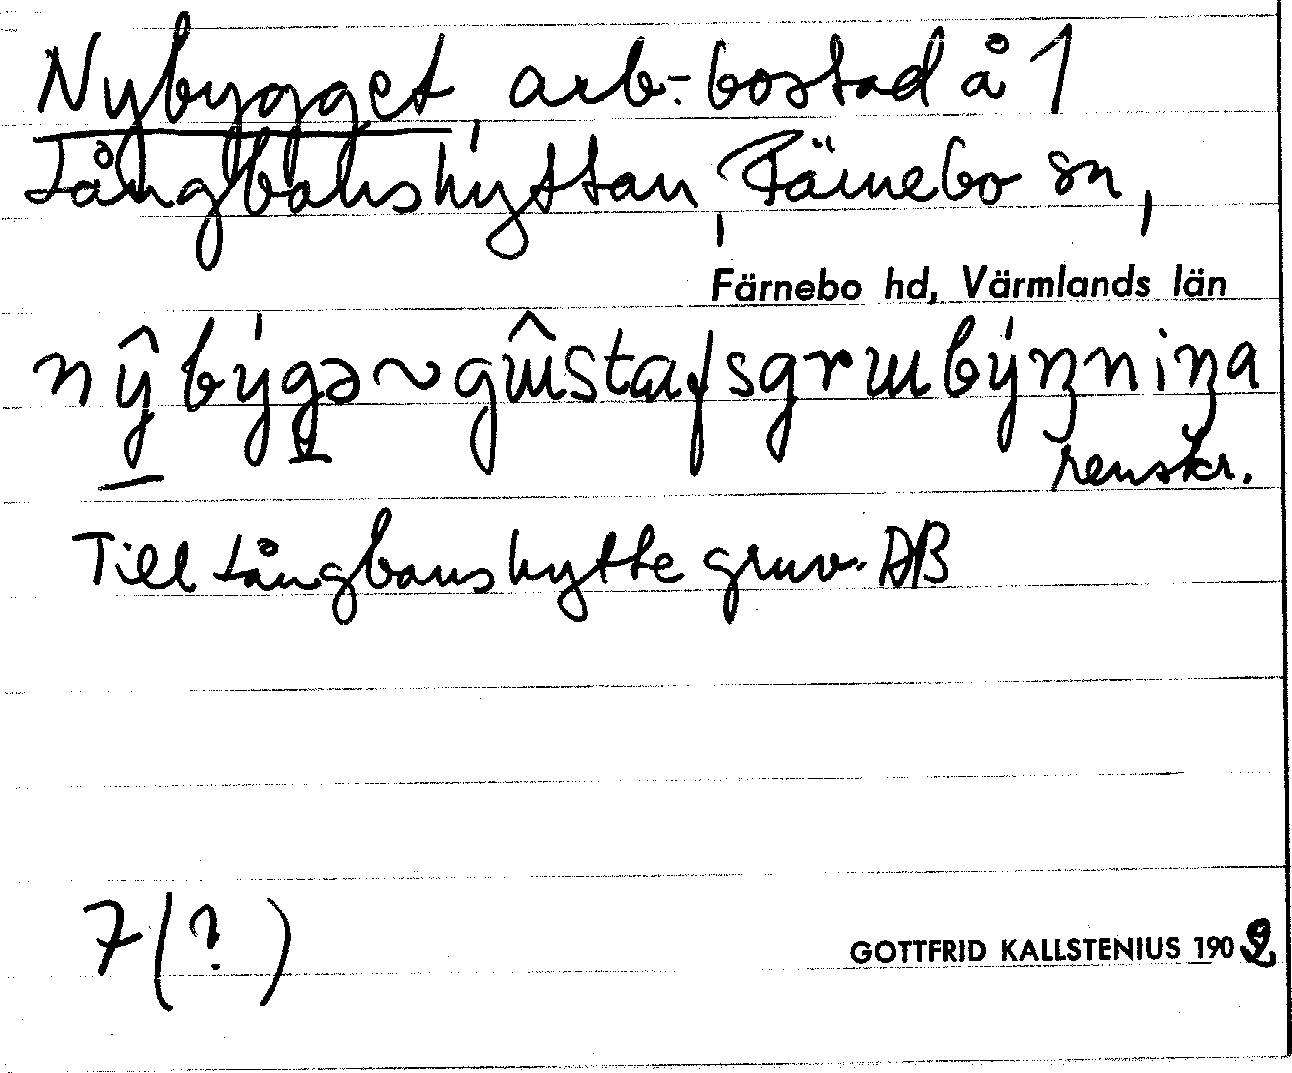 Nybygget, arb.-bostad å 1
Långbanshyttan, Färnebo sn,
Färnebo hd, Värmlands län
nŷbýgə ~ gɯ̂stafsgrɯbýŋniŋa
renskr.
Till Långbanshytte gruv. AB
7 (?)
GOTTFRID KALLSTENIUS 1902